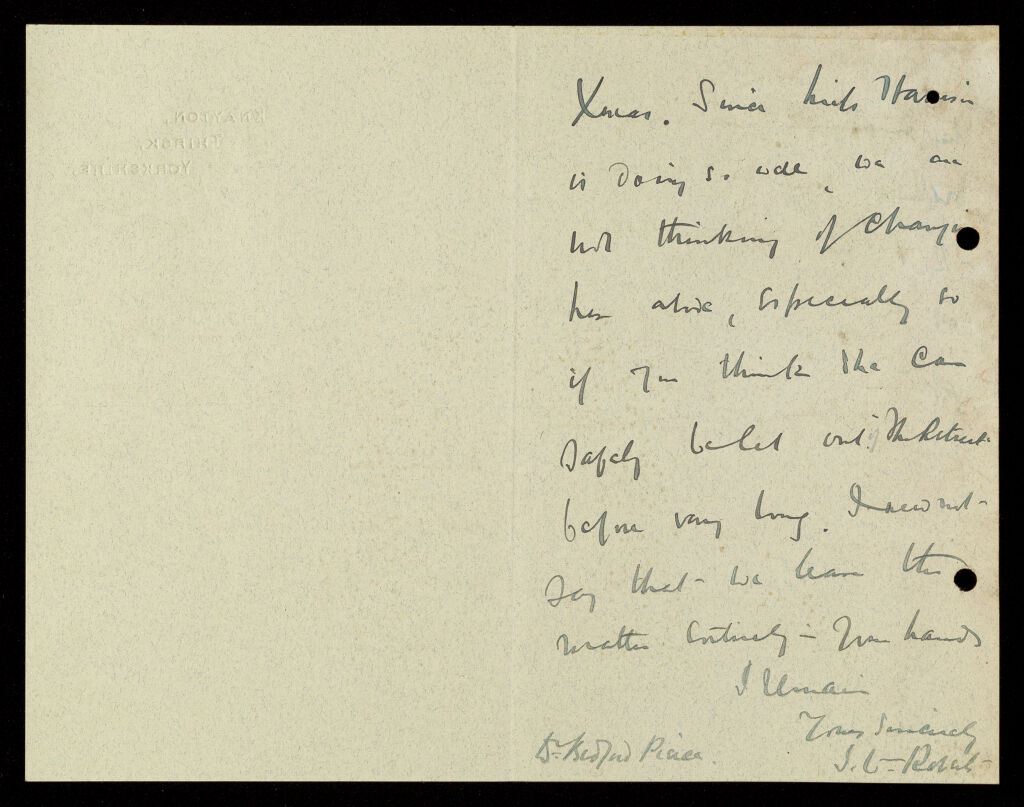 KNAYTON,
THIRSK,
YORKSHIRE
Xmas. Since Miss Harrison
is doing so well, we are
not thinking of changing
her abode, especially so
if you think she can
safely be let out of The Retreat
before very long. I need not
say that we leave the
matter entirely in your hands
I Remain
Yours Sincerely
Dr Bedford Pierce.